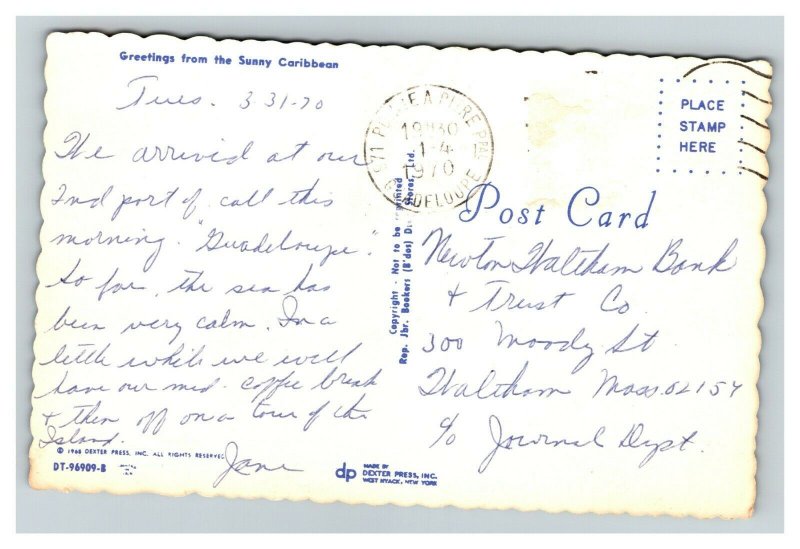 Greetings from the Sunny Caribbean
Tues. 3-31-70
We arrived at our
2nd port of call this
morning. "Guadeloupe."
So far, the sea has
been very calm. In a
little while we will
have our mid. coffee break
& then off on a tour of the
Island.
Jane
© 1968 DEXTER PRESS, INC. ALL RIGHTS RESERVED
DT-96909-B
dp
MADE BY
DEXTER PRESS, INC.
WEST NYACK, NEW YORK
Copyright - Not to be reprinted
Rep. Jhr. Beekers (B'dos) Stores, Ltd.
971 POINTE A PITRE PPAL
1-4
1970
GUADELOUPE
PLACE
STAMP
HERE
Post Card
Newton Waltham Bank
& Trust Co.
300 Moody St
Waltham Mass. 02154
c/o Journal Dept.